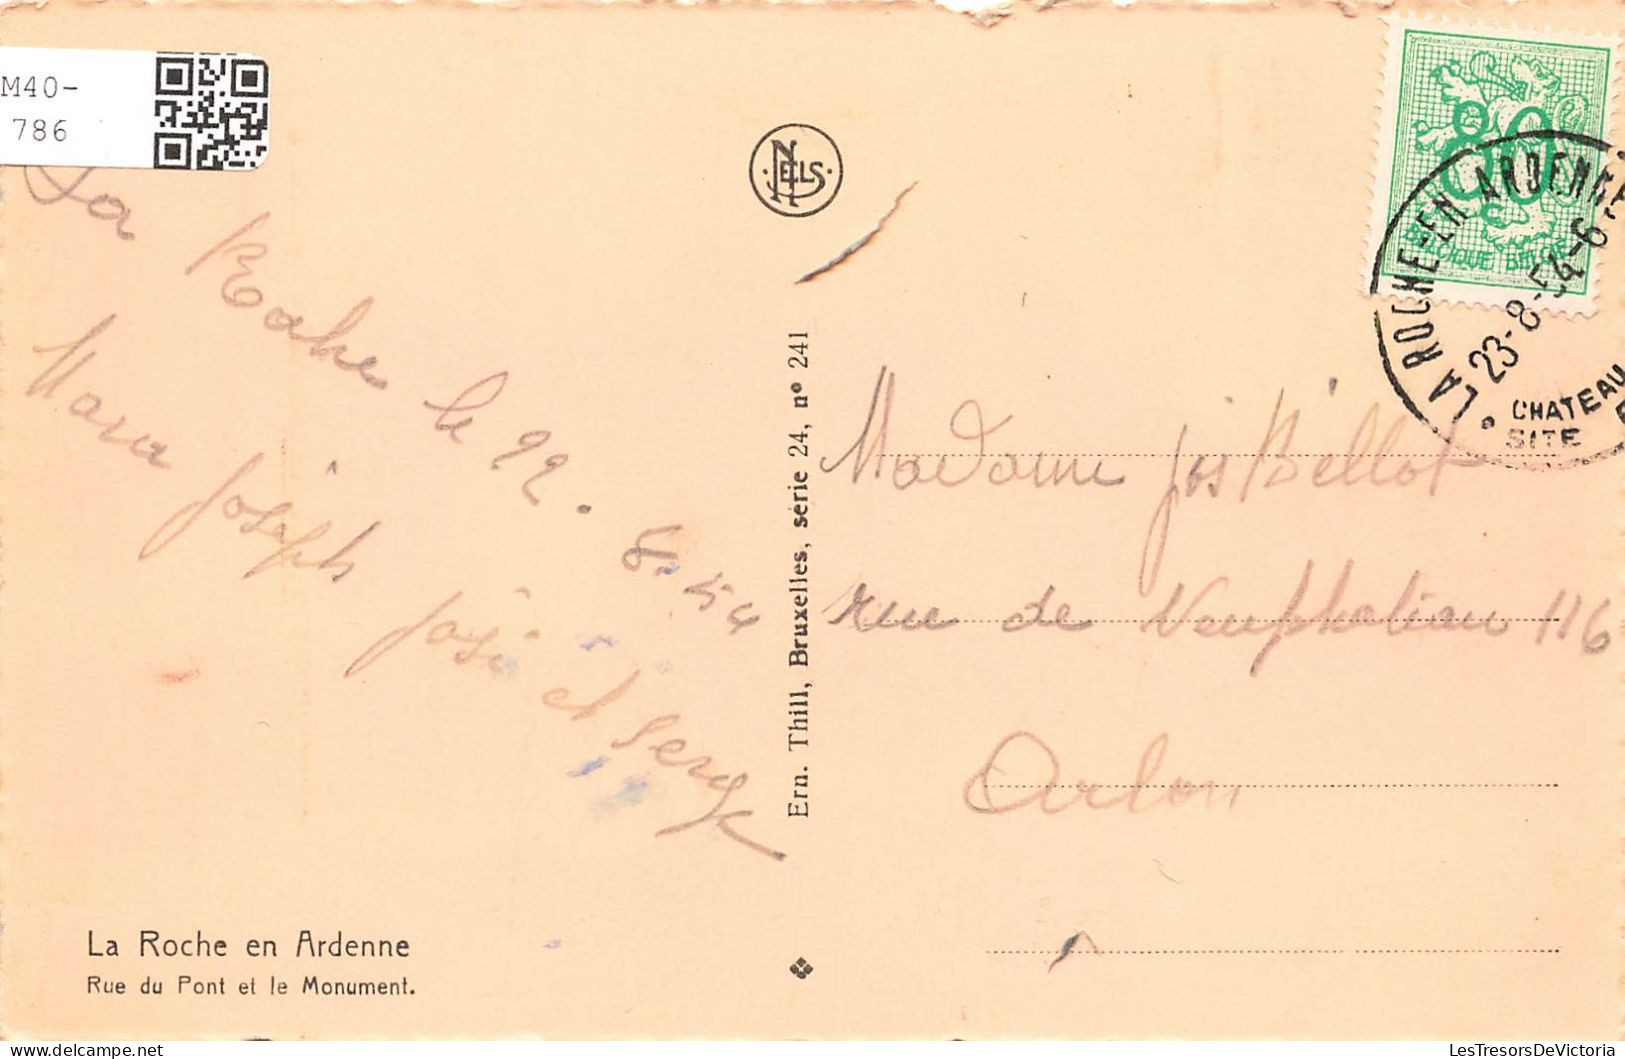 M40-
786
NELS
80
BELGIQUE BELGIE
LA ROCHE-EN ARDENNE
23-8-54-6
CHATEAU
SITE
La Roche le 22.
8-54
joseph
et Serge
Ern. Thill, Bruxelles, série 24, nº 241
Madame jos Bellot
rue de 116
Arlon
La Roche en Ardenne
Rue du Pont et le Monument.
LesTresorsDeVictoria